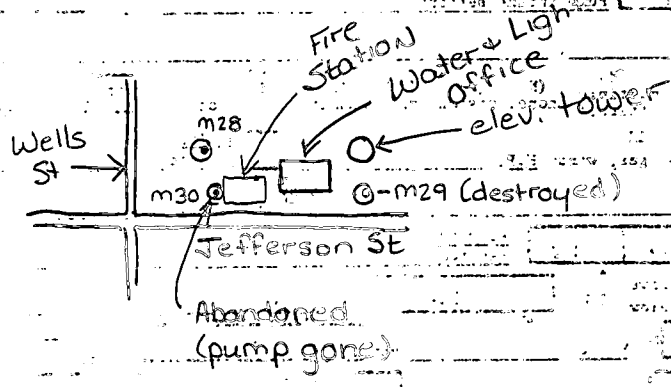 Fire
Station
Water & Ligh
Office
elev. tower
Wells
St
m28
m30
m29 (destroyed)
Jefferson St
Abandoned
(pump gone)